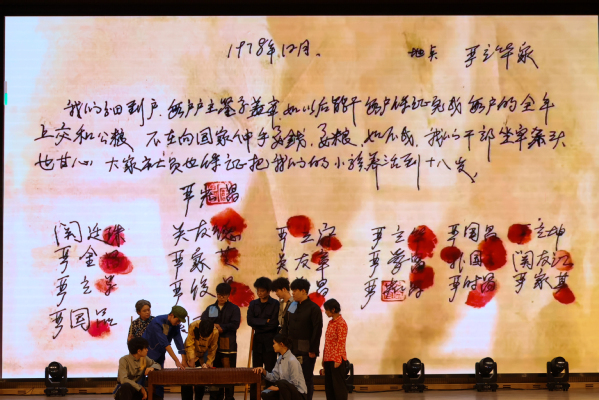 1978年12月. 地点 严立华家
我们分田到户,每户户主签字盖章,如以后能干,每户保证完成每户的全年
上交和公粮。不在向国家伸手要钱,要粮。如不成,我们干部坐牢杀头
也甘心。大家社员也保证把我们的小孩养活到十八岁。
严宏昌
关廷珠 关友德 严立富 严立 严国昌 严立坤
严金 严家芝 关友章 严学昌 国 关友江
严立学 严俊 昌 严宏昌 严付昌 严家其
严国品